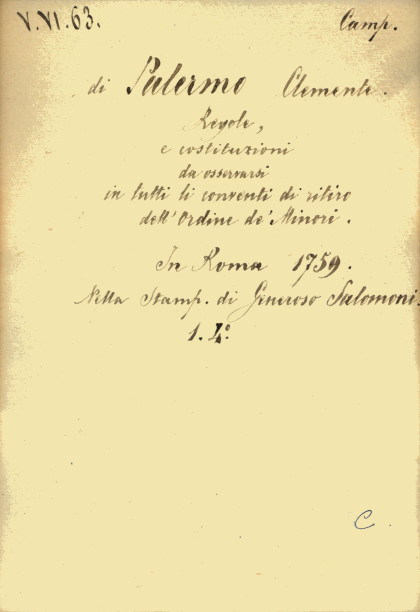 V.VI.63. Camp.
di Palermo Clemente.
Regole,
e costituzioni
da osservarsi
in tutti li conventi di ritiro
dell'Ordine de' Minori.
In Roma 1759.
Nella Stamp. di Generoso Salomoni.
1. 4º
C